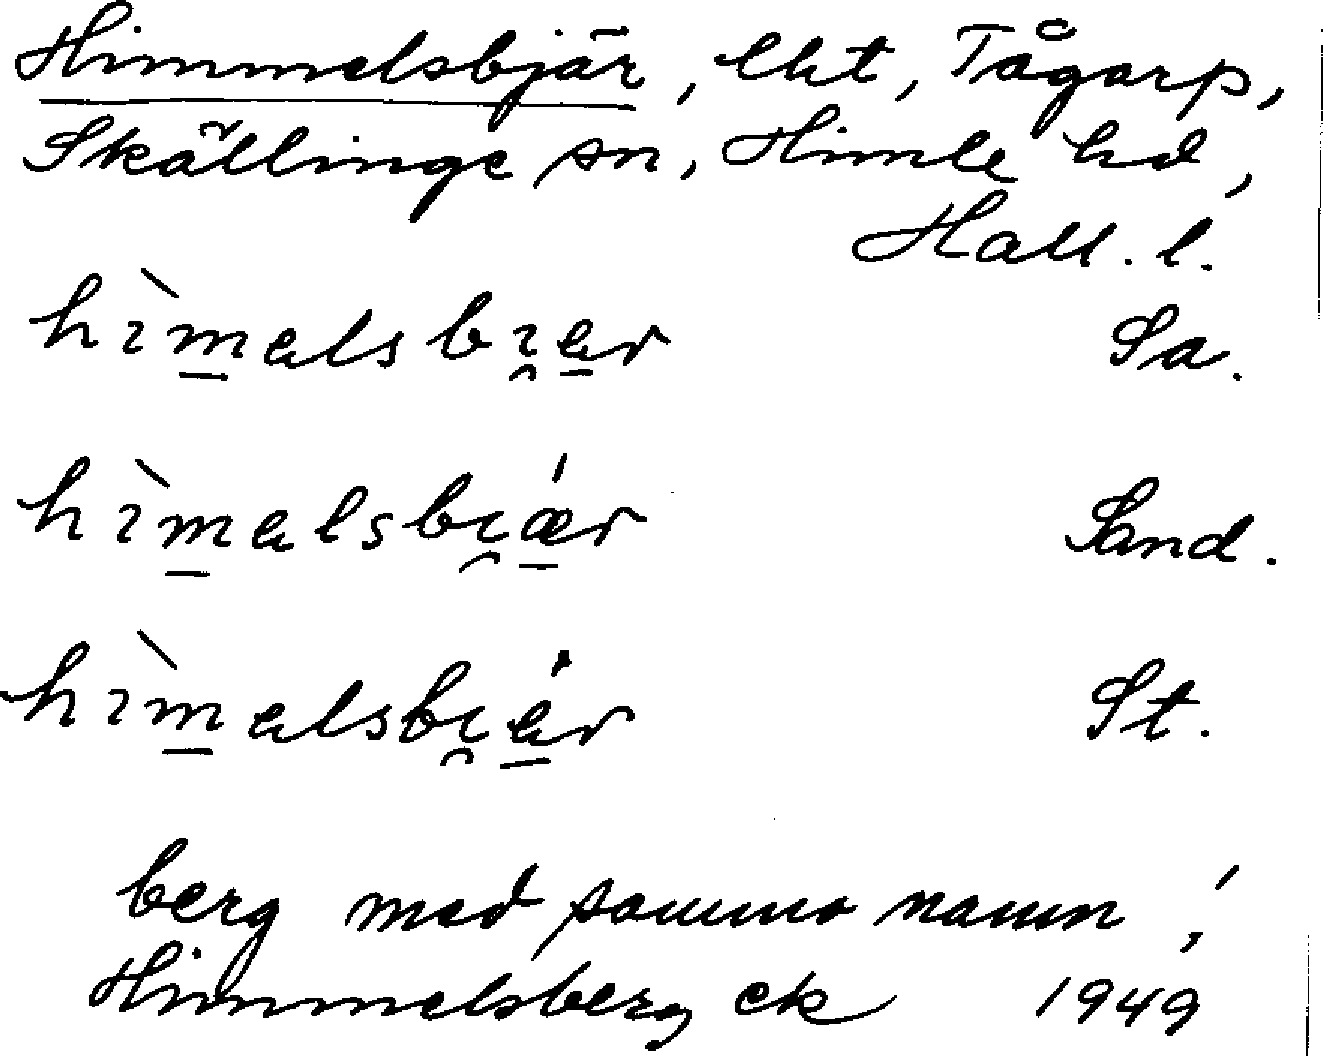 Himmelsbjär, lht, Tågarp,
Skällinge sn, Himle hd,
Hall. l.
hìmalsbi̯ar Sa.
hìmalsbi̯ǽr Sand.
hìmalsbi̯ár St.
berg med samma namn,
Himmelsberg ek 1949